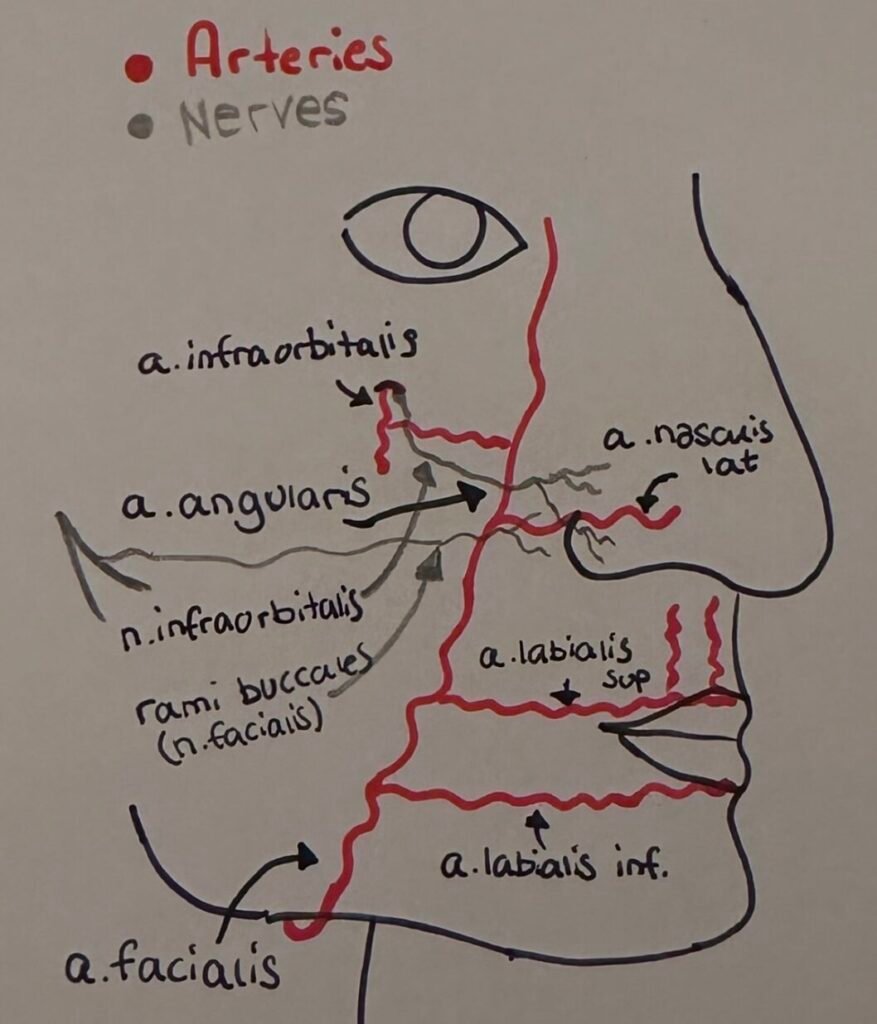 Arteries
Nerves
a.infraorbitalis
a.nasalis
lat
a.angularis
n.infraorbitalis
a.labialis
sup
rami buccales
(n.facialis)
a.labialis inf.
a.facialis